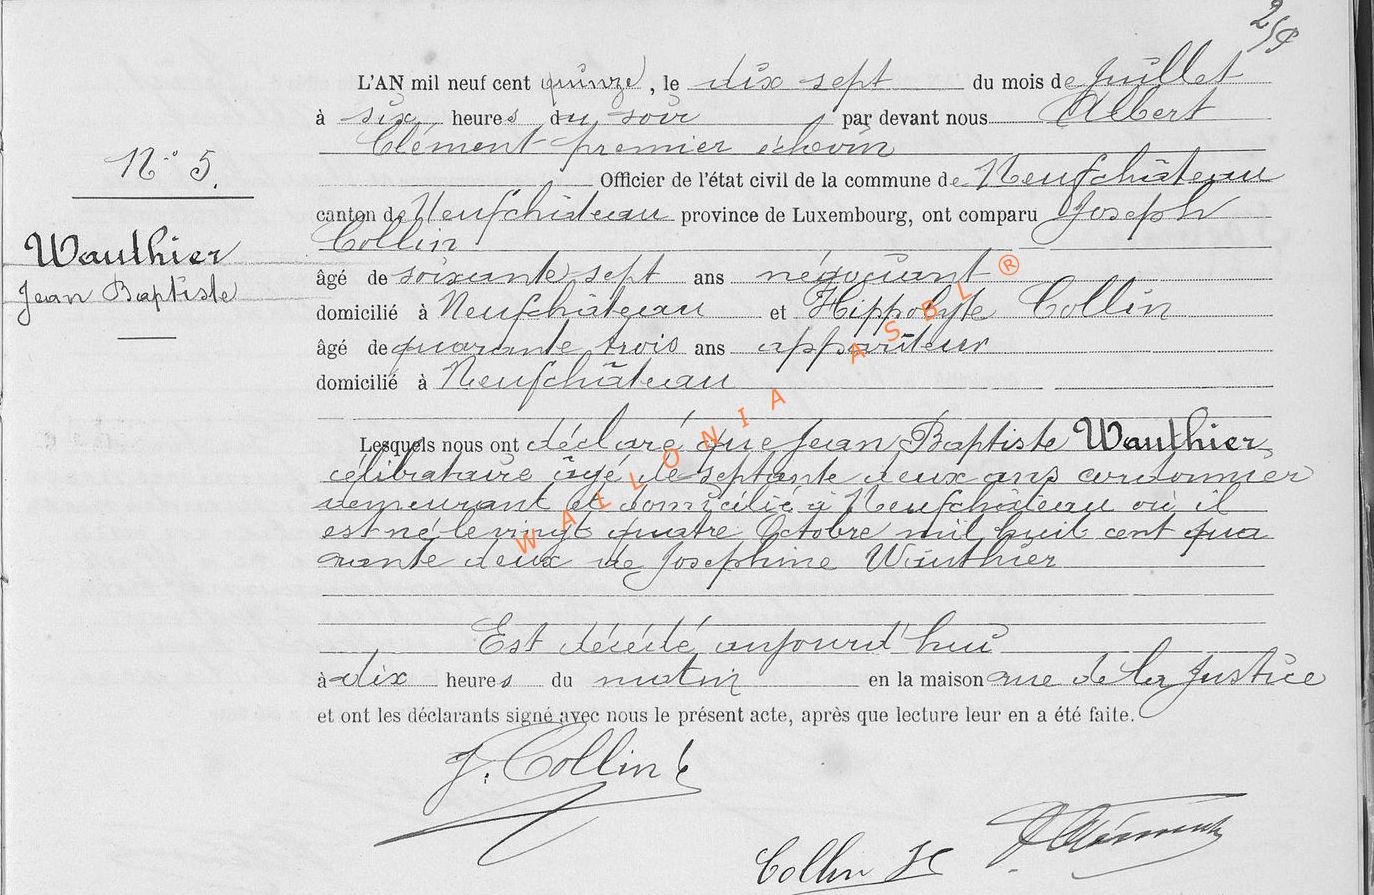 L'AN mil neuf cent quinze, le dix sept du mois de Juillet
à six heures du soir par devant nous Albert
Clément premier échevin
N° 5.
Officier de l'état civil de la commune de Neufchâteau
canton de Neufchâteau province de Luxembourg, ont comparu Joseph
Collin
Wauthier
Jean Baptiste
âgé de soixante sept ans négociant
domicilié à Neufchâteau et Hippolyte Collin
âgé de quarante trois ans appariteur
domicilié à Neufchâteau
Lesquels nous ont déclaré que Jean Baptiste Wauthier,
célibataire âgé de septante deux ans cordonnier
demeurant et domicilié à Neufchâteau où il
est né le vingt quatre Octobre mil huit cent qua
rante deux de Joséphine Wauthier
Est décédé aujourd'hui
à dix heures du matin en la maison rue de la Justice
et ont les déclarants signé avec nous le présent acte, après que lecture leur en a été faite.
J. Collin
Collin H
A Clément
WALLONIA ASBL ®